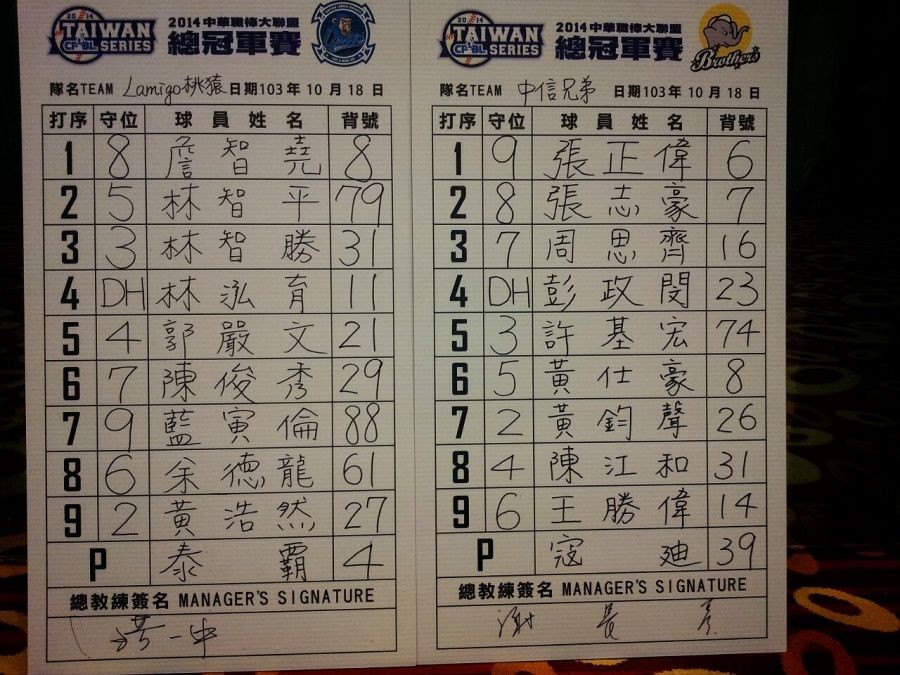 2014
TAIWAN
CPBL SERIES
2014中華職棒大聯盟
總冠軍賽
隊名TEAM Lamigo桃猿 日期103年10月18日
打序 守位 球員姓名 背號
1 8 詹智堯 8
2 5 林智平 79
3 3 林智勝 31
4 DH 林泓育 11
5 4 郭嚴文 21
6 7 陳俊秀 29
7 9 藍寅倫 88
8 6 余德龍 61
9 2 黃浩然 27
P 泰霸 4
總教練簽名 MANAGER'S SIGNATURE
洪一中
2014
TAIWAN
CPBL SERIES
2014中華職棒大聯盟
總冠軍賽
Brothers
隊名TEAM 中信兄弟 日期103年10月18日
打序 守位 球員姓名 背號
1 9 張正偉 6
2 8 張志豪 7
3 7 周思齊 16
4 DH 彭政閔 23
5 3 許基宏 74
6 5 黃仕豪 8
7 2 黃鈞聲 26
8 4 陳江和 31
9 6 王勝偉 14
P 寇廸 39
總教練簽名 MANAGER'S SIGNATURE
謝長亨